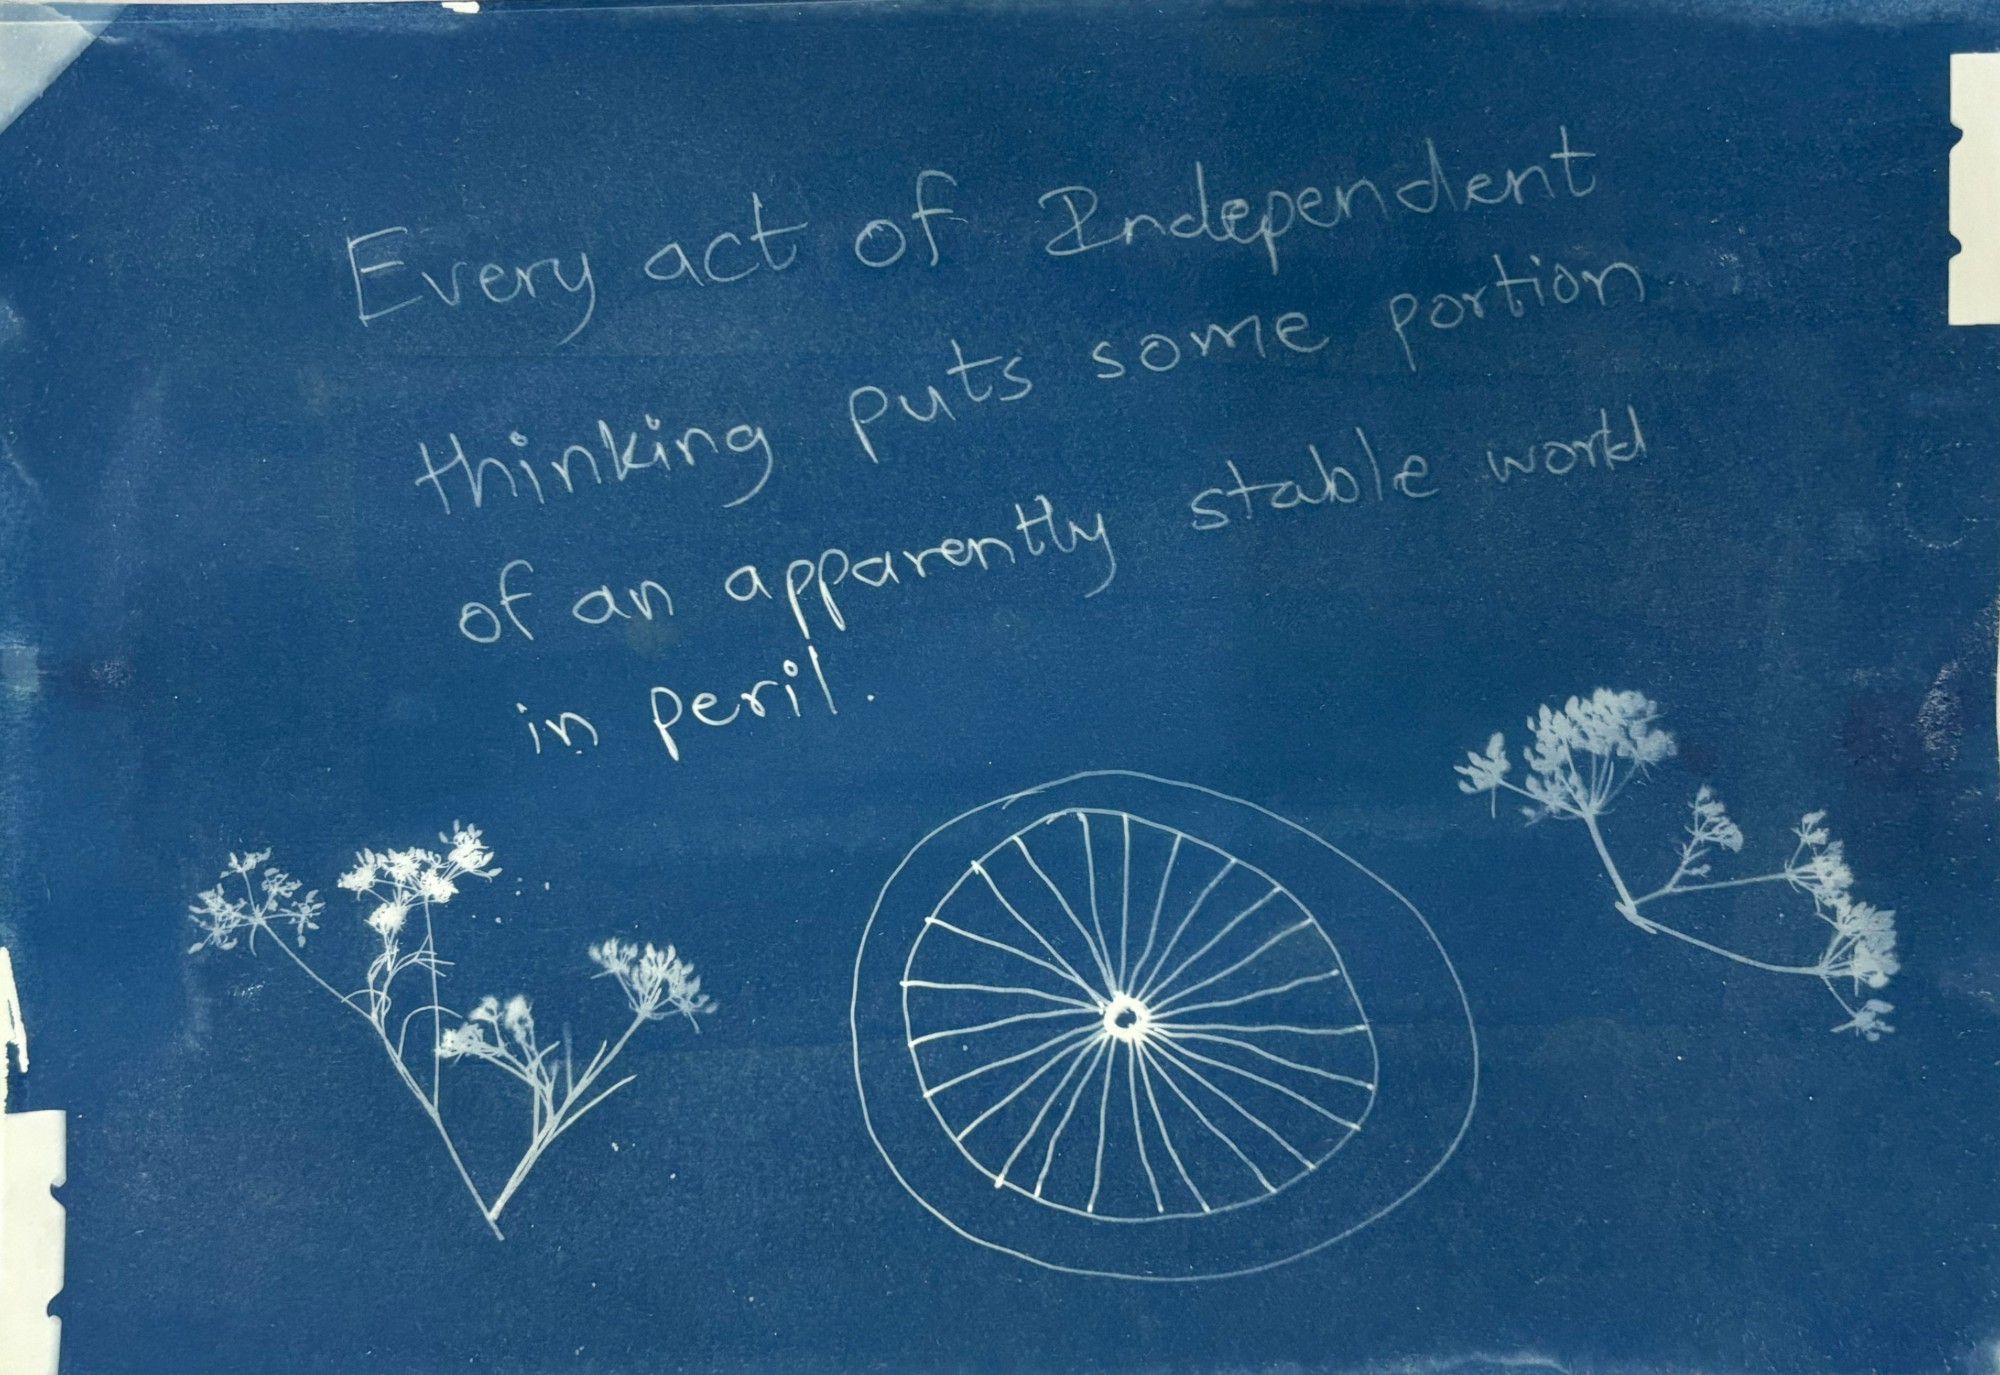 Every act of Independent
thinking puts some portion
of an apparently stable world
in peril.